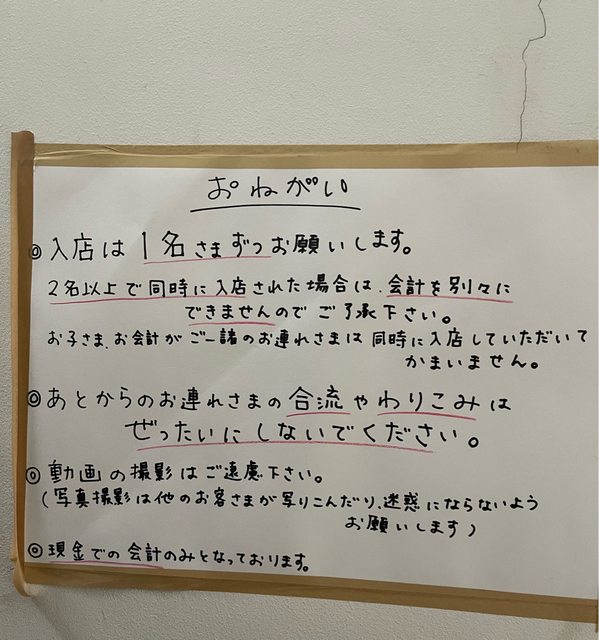 おねがい
◎ 入店は1名さまずつお願いします。
2名以上で同時に入店された場合は、会計を別々に
できませんのでご了承下さい。
お子さま、お会計がご一諸のお連れさまは同時に入店していただいて
かまいません。
◎ あとからのお連れさまの合流やわりこみは
ぜったいにしないでください。
◎ 動画の撮影はご遠慮下さい。
(写真撮影は他のお客さまが写りこんだり、迷惑にならないよう
お願いします)
◎ 現金での会計のみとなっております。